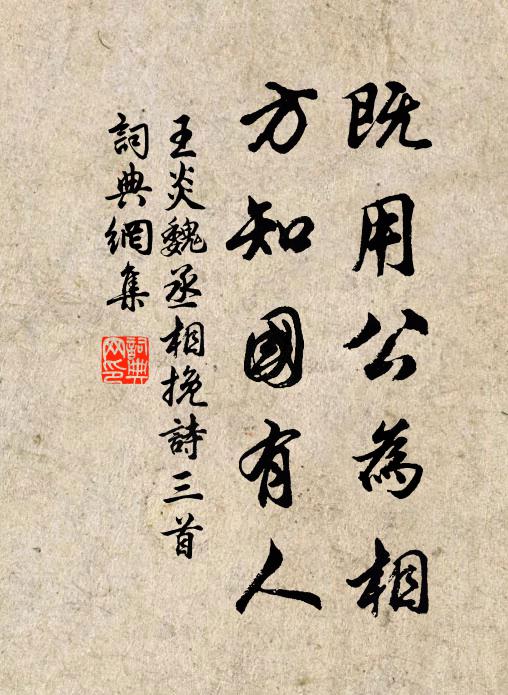 既用公為相
方知國有人
王炎魏丞相挽詩三首
詞典網集
詞典網印